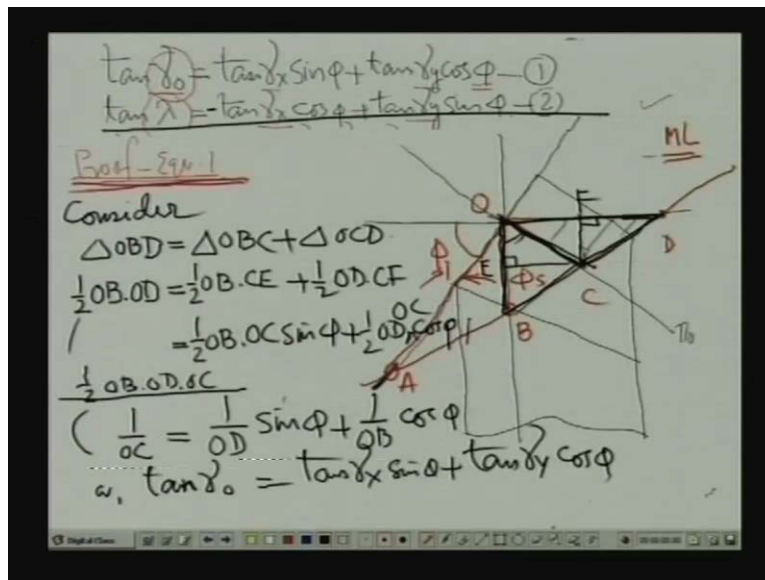 tan γ₀ = tan γx sin φ + tan γy cos φ — ①
tan λ = -tan γx cos φ + tan γy sin φ — ②
Proof - Eqn. 1
ML
Consider
△OBD = △OBC + △OCD
½ OB.OD = ½ OB.CE + ½ OD.CF
= ½ OB.OC sin φ + ½ OD.OC cos φ
½ OB.OD.OC
1/OC = 1/OD sin φ + 1/OB cos φ
or, tan γ₀ = tan γx sin φ + tan γy cos φ
O
F
D
φ
E
φs
C
B
A
π₀
Digital Class